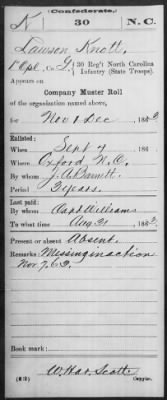 (Confederate.)
K 30 N.C.
Lawson Knott
Co. G, 30 Reg't North Carolina
Infantry (State Troops).
Appears on
Company Muster Roll
of the organization named above,
for Nov & Dec, 1863.
Enlisted:
When Sept 7, 186
Where Oxford N.C.
By whom J. A. Barnett
Period 3 years.
Last paid:
By whom Capt Williams
To what time Aug 31, 1863.
Present or absent Absent.
Remarks: Missing in action
Nov. 7, 63.
Book mark:
Copyist.